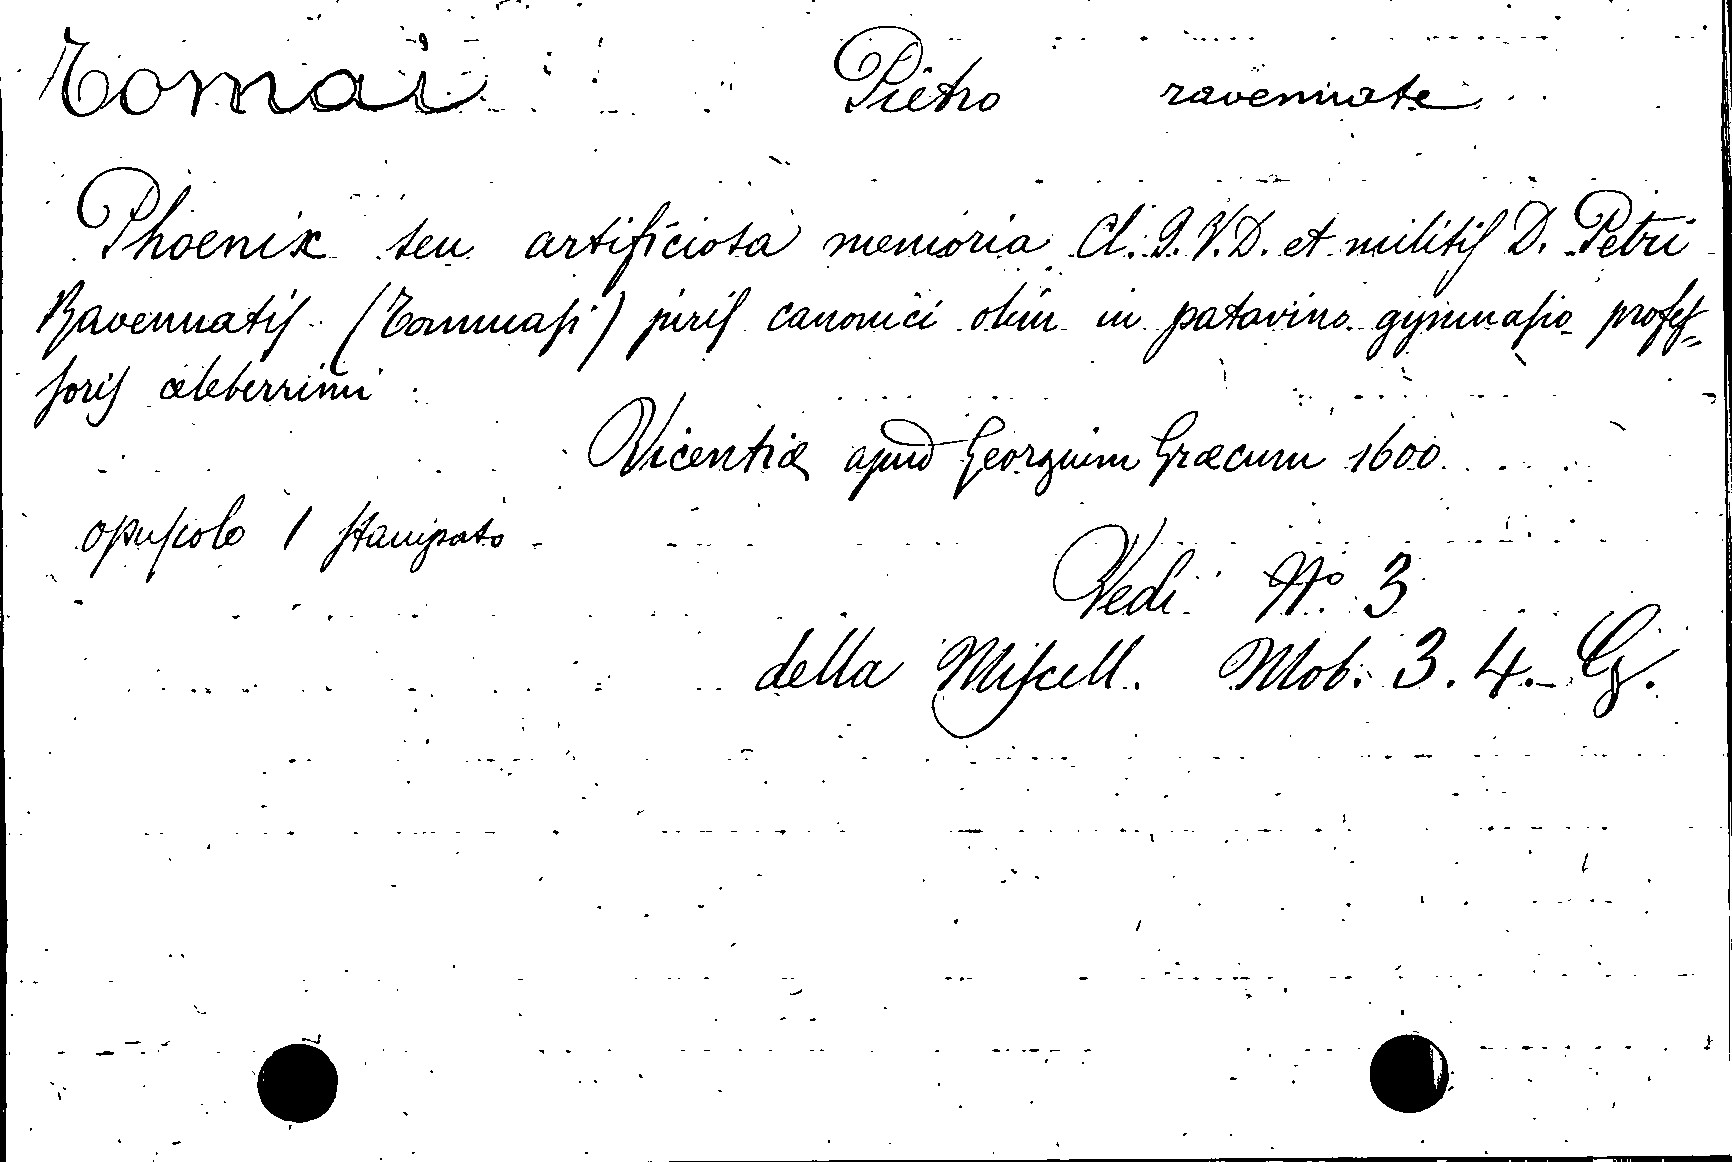 Tomai Pietro ravennate
Phoenix seu artificiosa memoria Cl. I. V. D. et militis D. Petri
Ravennatis (Tommasi) juris canonici olim in patavino gymnasio profes=
soris celeberrimi
Vicentiæ apud Georgium Græcum 1600
opuscolo 1 stampato
Vedi Nº 3
della Miscell. Mob. 3. 4. G.